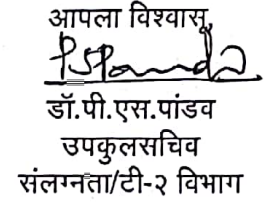 आपला विश्वासू,
डॉ.पी.एस.पांडव
उपकुलसचिव
संलग्नता/टी-२ विभाग